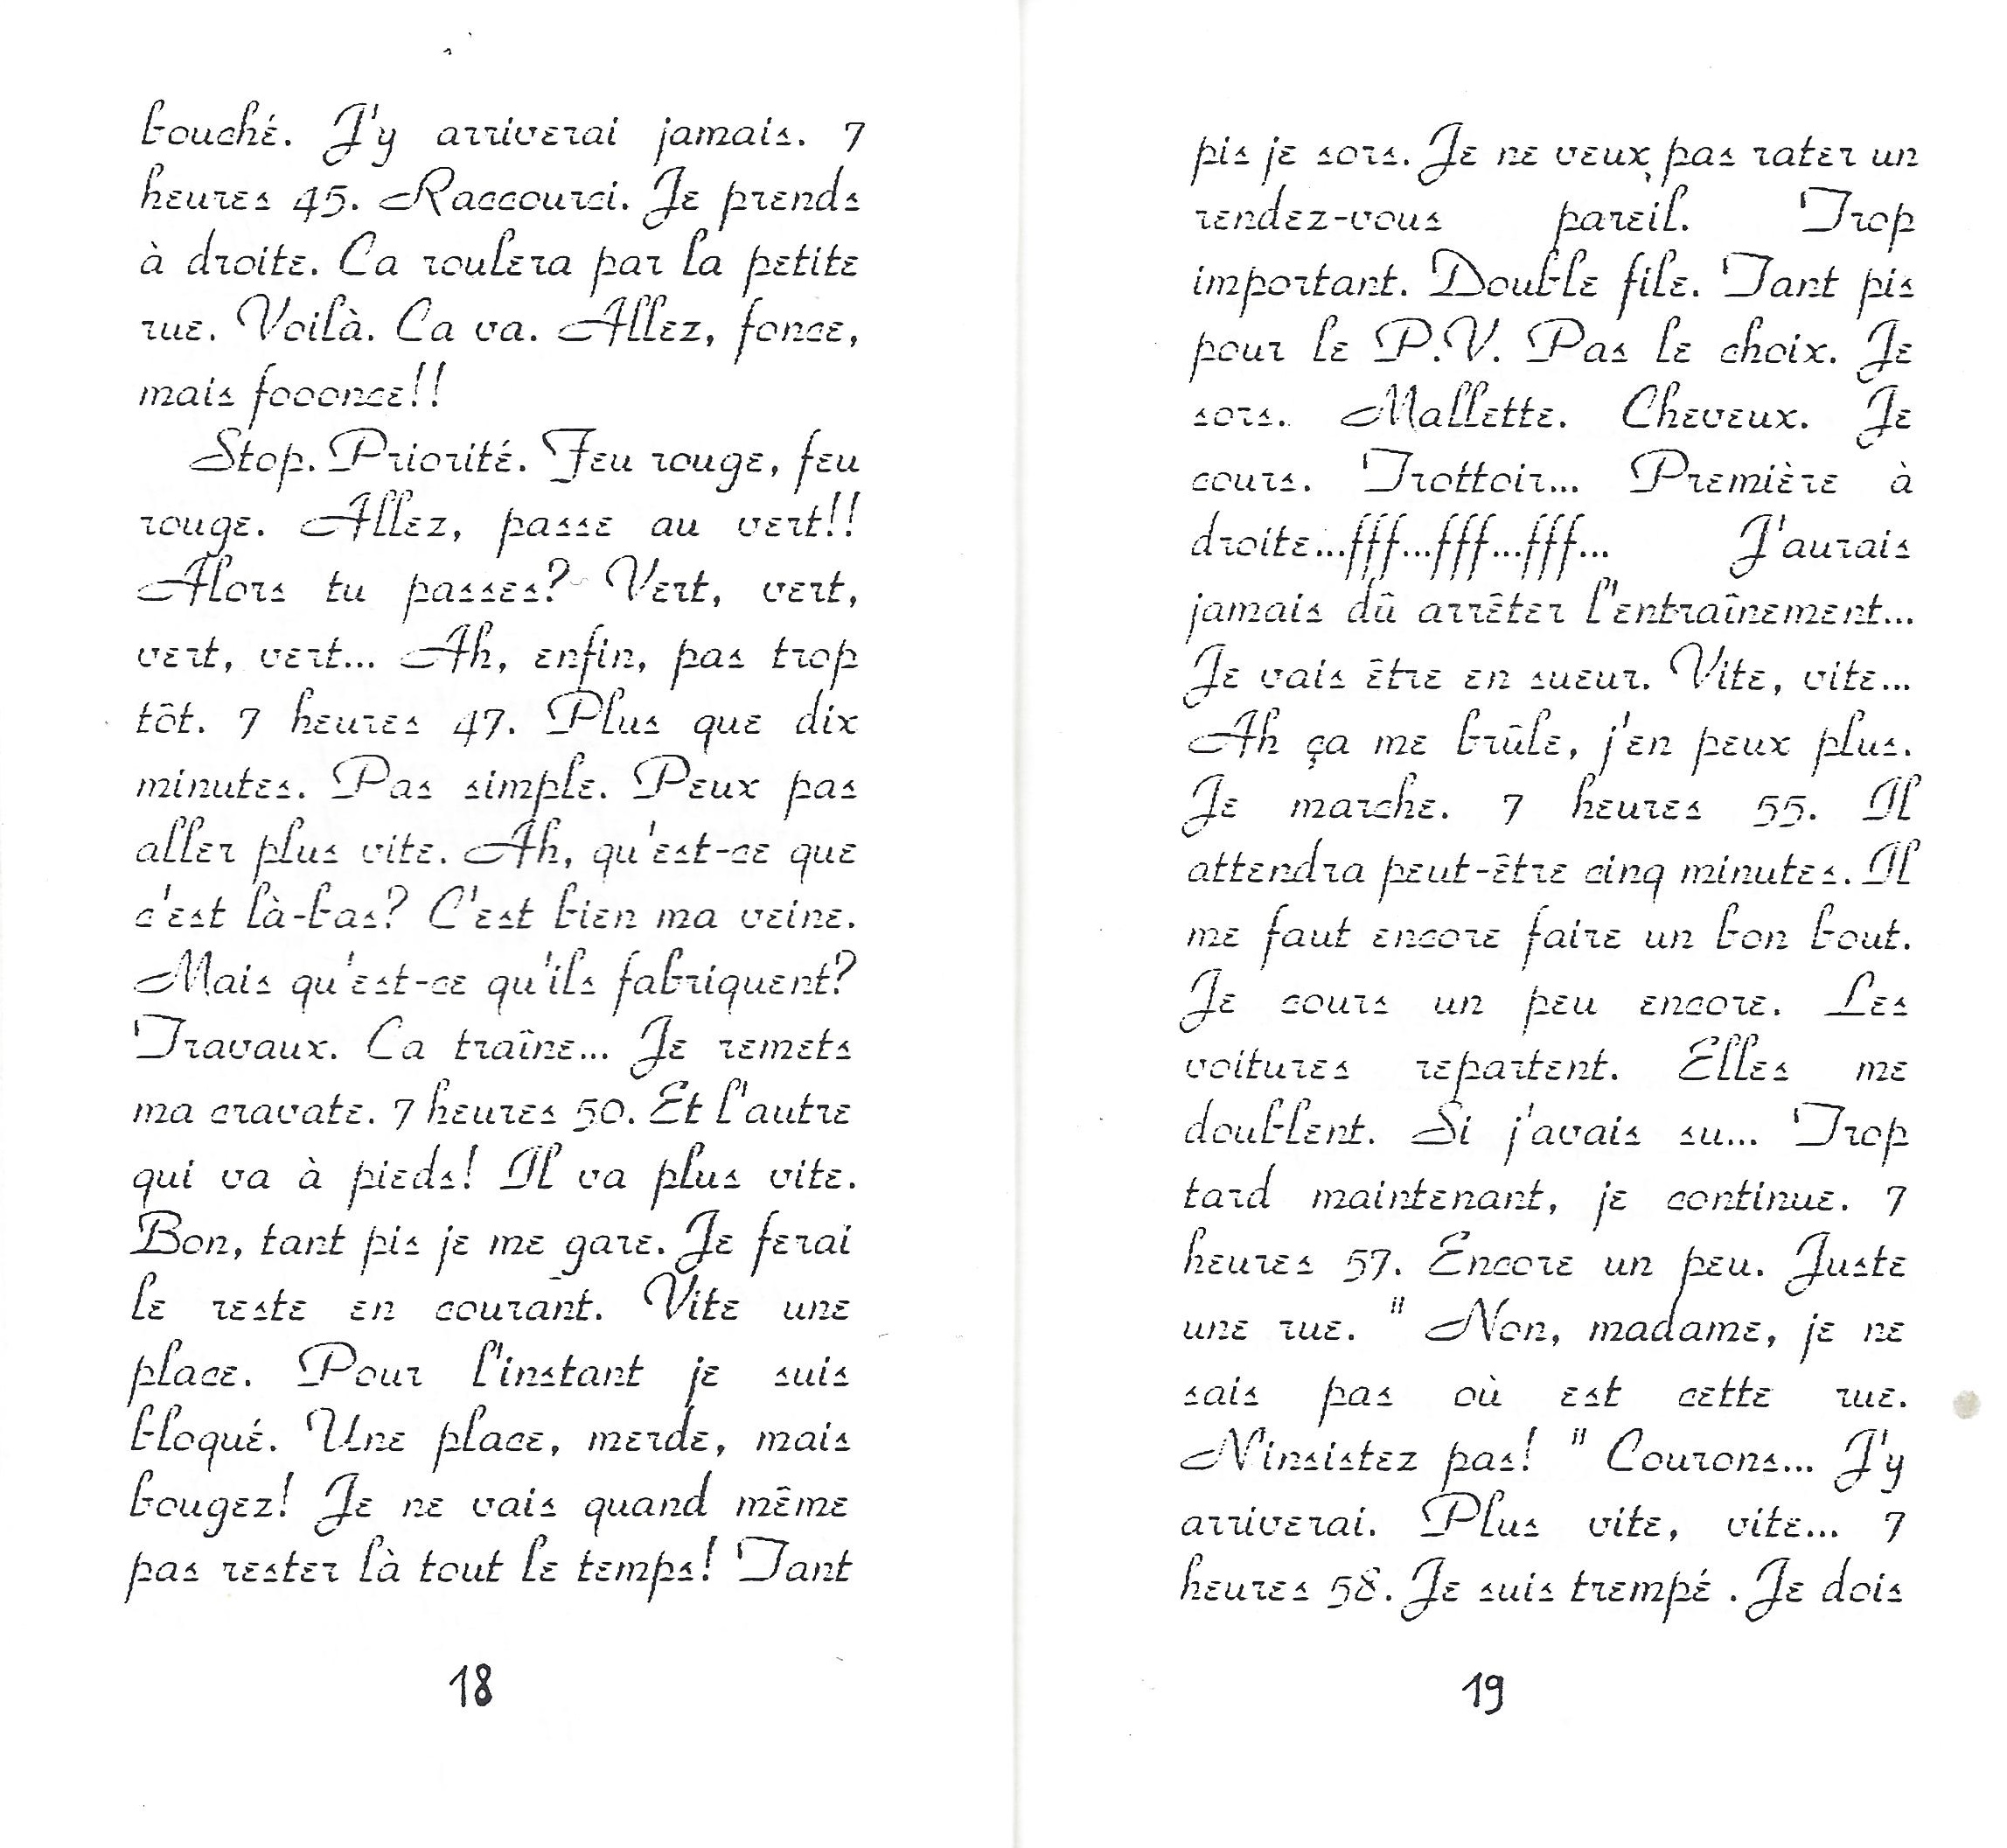 bouché. J'y arriverai jamais. 7
heures 45. Raccourci. Je prends
à droite. Ca roulera par la petite
rue. Voilà. Ca va. Allez, fonce,
mais fooonce!!
Stop. Priorité. Feu rouge, feu
rouge. Allez, passe au vert!!
Alors tu passes? Vert, vert,
vert, vert... Ah, enfin, pas trop
tôt. 7 heures 47. Plus que dix
minutes. Pas simple. Peux pas
aller plus vite. Ah, qu'est-ce que
c'est là-bas? C'est bien ma veine.
Mais qu'est-ce qu'ils fabriquent?
Travaux. Ca traîne... Je remets
ma cravate. 7 heures 50. Et l'autre
qui va à pieds! Il va plus vite.
Bon, tant pis je me gare. Je ferai
le reste en courant. Vite une
place. Pour l'instant je suis
bloqué. Une place, merde, mais
bougez! Je ne vais quand même
pas rester là tout le temps! Tant
18
pis je sors. Je ne veux pas rater un
rendez-vous pareil. Trop
important. Double file. Tant pis
pour le P.V. Pas le choix. Je
sors. Mallette. Cheveux. Je
cours. Trottoir... Première à
droite...fff...fff...fff... J'aurais
jamais dû arrêter l'entraînement...
Je vais être en sueur. Vite, vite...
Ah ça me brûle, j'en peux plus.
Je marche. 7 heures 55. Il
attendra peut-être cinq minutes. Il
me faut encore faire un bon bout.
Je cours un peu encore. Les
voitures repartent. Elles me
doublent. Si j'avais su... Trop
tard maintenant, je continue. 7
heures 57. Encore un peu. Juste
une rue. " Non, madame, je ne
sais pas où est cette rue.
N'insistez pas! " Courons... J'y
arriverai. Plus vite, vite... 7
heures 58. Je suis trempé . Je dois
19